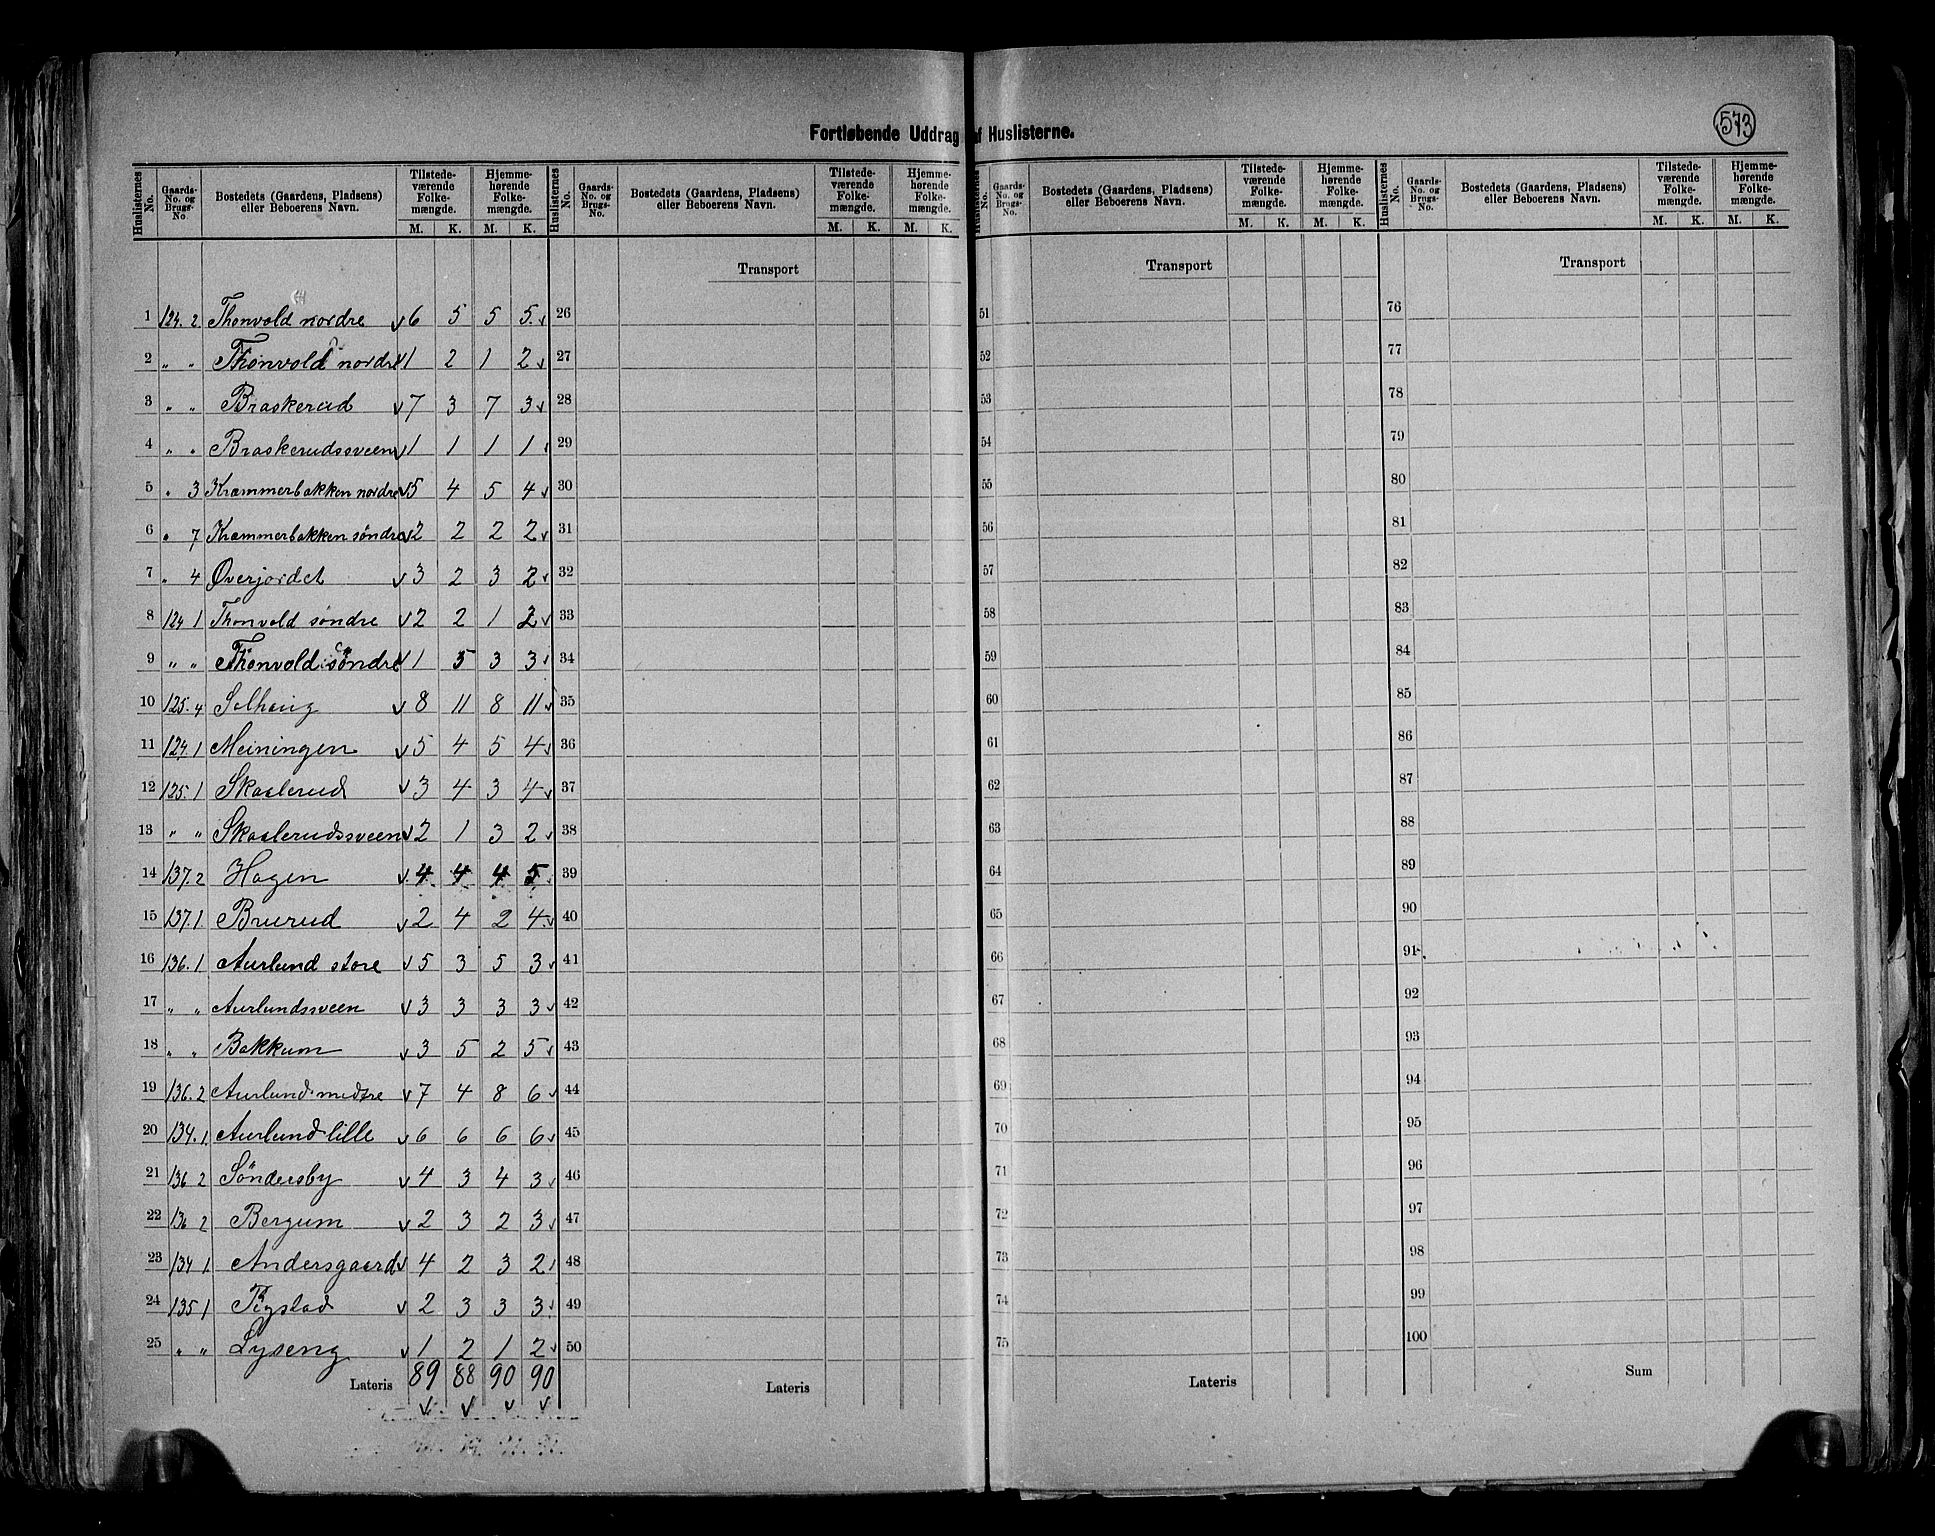 573
Fortløbende Uddrag af Huslisterne.
Huslisternes No. | Gaards-No. og Brugs-No. | Bostedets (Gaardens, Pladsens) eller Beboerens Navn. | Tilstedeværende Folkemængde. M. K. | Hjemmehørende Folkemængde. M. K.
Huslisternes No. | Gaards-No. og Brugs-No. | Bostedets (Gaardens, Pladsens) eller Beboerens Navn. | Tilstedeværende Folkemængde. M. K. | Hjemmehørende Folkemængde. M. K.
Huslisternes No. | Gaards-No. og Brugs-No. | Bostedets (Gaardens, Pladsens) eller Beboerens Navn. | Tilstedeværende Folkemængde. M. K. | Hjemmehørende Folkemængde. M. K.
Huslisternes No. | Gaards-No. og Brugs-No. | Bostedets (Gaardens, Pladsens) eller Beboerens Navn. | Tilstedeværende Folkemængde. M. K. | Hjemmehørende Folkemængde. M. K.
Transport Transport Transport
1 124. 2 Thonvold nordre 6 5 5 5 26 51 76
2 " " Thonvold nordre 1 2 1 2 27 52 77
3 " " Braskerud 7 3 7 3 28 53 78
4 " " Braskerudssveen 1 1 1 1 29 54 79
5 " 3 Kræmmerbakken nordre 5 4 5 4 30 55 80
6 " 7 Kræmmerbakken søndre 2 2 2 2 31 56 81
7 " 4 Øverjordet 3 2 3 2 32 57 82
8 124 1 Thonvold søndre 2 2 1 2 33 58 83
9 " " Thonvold søndre 1 5 3 3 34 59 84
10 125. 4 Solhaug 8 11 8 11 35 60 85
11 124. 1 Meiningen 5 4 5 4 36 61 86
12 125. 1 Skaslerud 3 4 3 4 37 62 87
13 " " Skaslerudssveen 2 1 3 2 38 63 88
14 137. 2 Hagen 4 4 4 5 39 64 89
15 137. 1 Bruerud 2 4 2 4 40 65 90
16 136. 1 Aurlund store 5 3 5 3 41 66 91
17 " " Aurlundssveen 3 3 3 3 42 67 92
18 " " Bakkum 3 5 2 5 43 68 93
19 136. 2 Aurlund medtre 7 4 8 6 44 69 94
20 134. 1. Aurlund lille 6 6 6 6 45 70 95
21 136 2 Söndersby 4 3 4 3 46 71 96
22 136 2 Bergum 2 3 2 3 47 72 97
23 134 1. Andersgaard 4 2 3 2 48 73 98
24 135 1 Tystad 2 3 3 3 49 74 99
25 " " Lyseng 1 2 1 2 50 75 100
Lateris 89 88 90 90 Lateris Lateris Sum